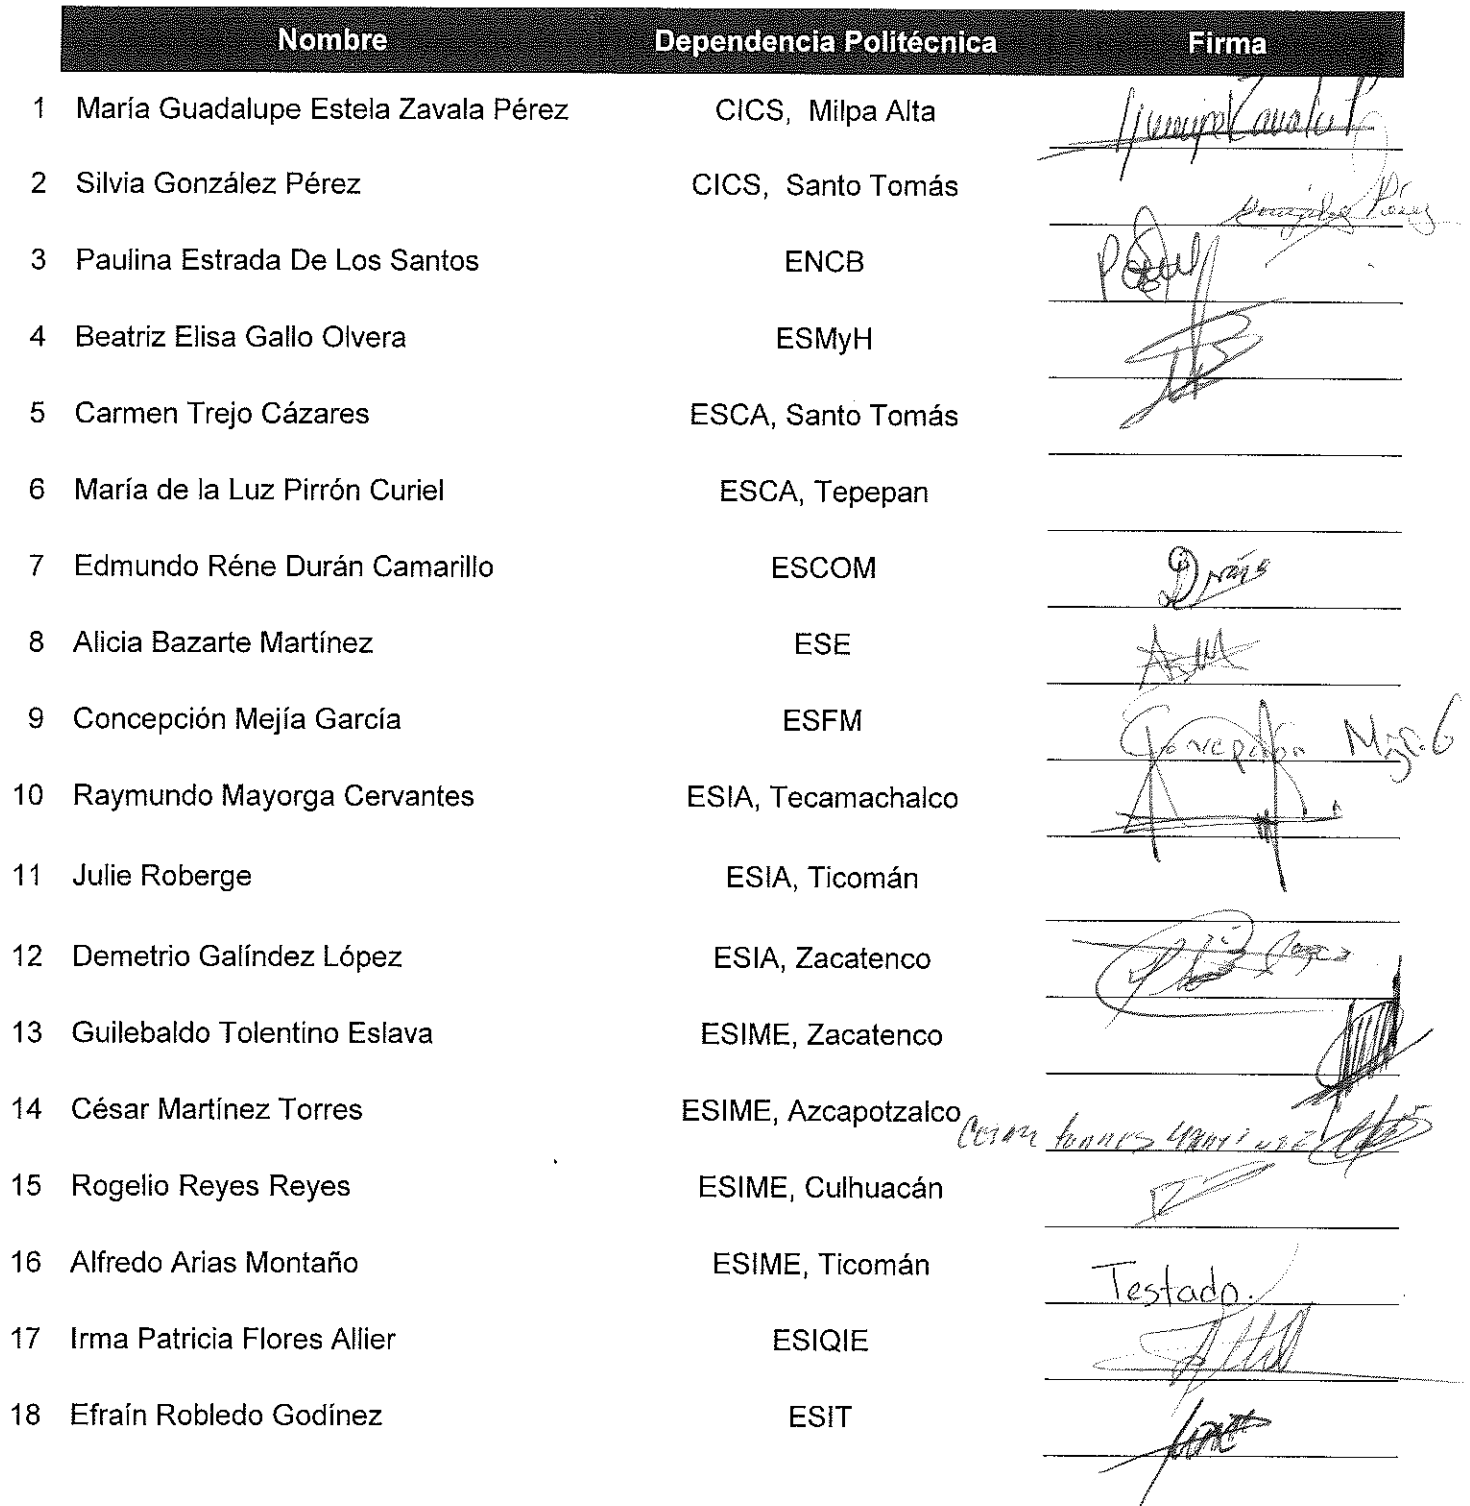 Nombre Dependencia Politécnica Firma
1 María Guadalupe Estela Zavala Pérez CICS, Milpa Alta
2 Silvia González Pérez CICS, Santo Tomás González Pérez
3 Paulina Estrada De Los Santos ENCB
4 Beatriz Elisa Gallo Olvera ESMyH
5 Carmen Trejo Cázares ESCA, Santo Tomás
6 María de la Luz Pirrón Curiel ESCA, Tepepan
7 Edmundo Réne Durán Camarillo ESCOM
8 Alicia Bazarte Martínez ESE
9 Concepción Mejía García ESFM Concepción
10 Raymundo Mayorga Cervantes ESIA, Tecamachalco
11 Julie Roberge ESIA, Ticomán
12 Demetrio Galíndez López ESIA, Zacatenco
13 Guilebaldo Tolentino Eslava ESIME, Zacatenco
14 César Martínez Torres ESIME, Azcapotzalco
15 Rogelio Reyes Reyes ESIME, Culhuacán
16 Alfredo Arias Montaño ESIME, Ticomán Testado.
17 Irma Patricia Flores Allier ESIQIE
18 Efraín Robledo Godínez ESIT